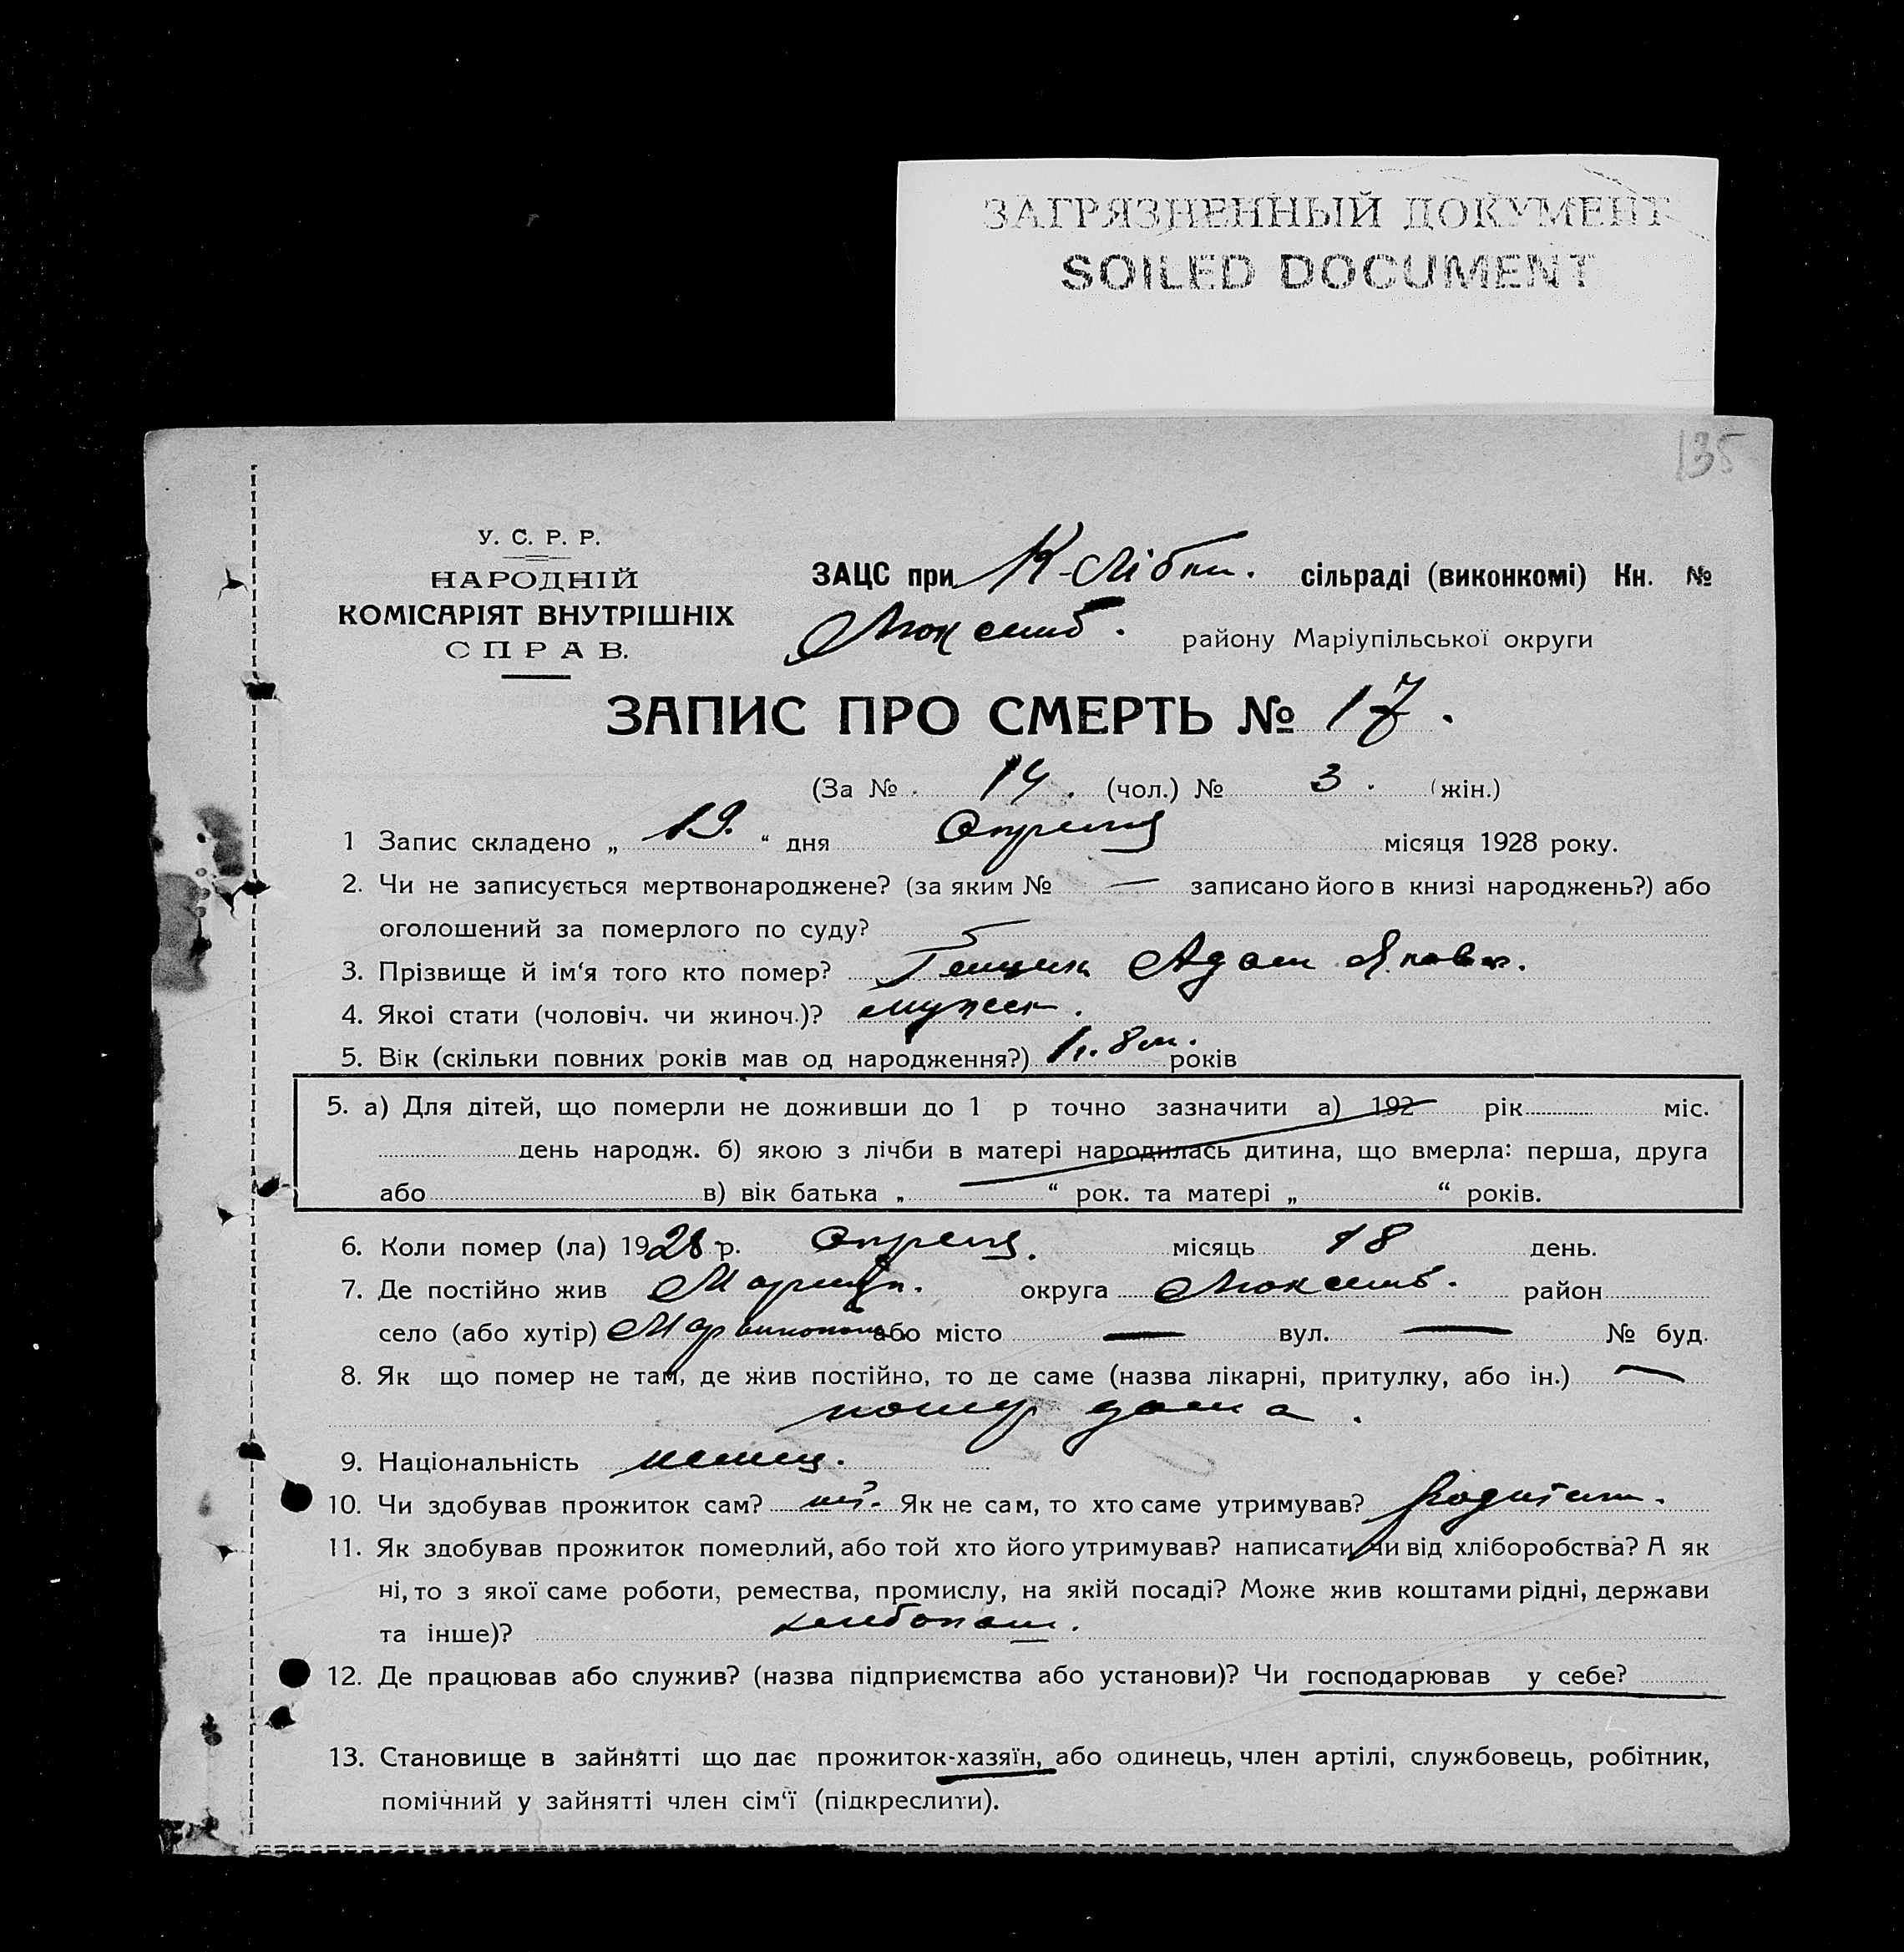 ЗАГРЯЗНЕННЫЙ ДОКУМЕНТ
SOILED DOCUMENT
135
У. С. Р. Р.
НАРОДНІЙ
КОМІСАРІЯТ ВНУТРІШНІХ
СПРАВ.
ЗАЦС при К-Лібкн. сільраді (виконкомі) Кн. №
Люксемб. району Маріупільської округи
ЗАПИС ПРО СМЕРТЬ № 17.
(За № 14. (чол.) № 3. (жін.)
1 Запис складено „ 19. “ дня Апреля місяця 1928 року.
2. Чи не записується мертвонароджене? (за яким № — записано його в книзі народжень?) або
оголошений за померлого по суду?
3. Прізвище й ім‘я того кто помер? Адам
4. Якоі стати (чоловіч. чи жиноч.)? мужск.
5. Вік (скільки повних років мав од народження?) 1 г. 8 м. років
5. а) Для дітей, що померли не доживши до 1 р точно зазначити а) 192 рік міс.
день народж. б) якою з лічби в матері народилась дитина, що вмерла: перша, друга
або в) вік батька „ “ рок. та матері „ “ років.
6. Коли помер (ла) 1928 р. Апреля. місяць 18 день.
7. Де постійно жив Мариуп. округа Люксемб. район
село (або хутір) або місто — вул. — № буд.
8. Як що помер не там, де жив постійно, то де саме (назва лікарні, притулку, або ін.) —
дома.
9. Національність немец.
10. Чи здобував прожиток сам? нет. Як не сам, то хто саме утримував? родители.
11. Як здобував прожиток померлий, або той хто його утримував? написати чи від хліборобства? А як
ні, то з якої саме роботи, ремества, промислу, на якій посаді? Може жив коштами рідні, держави
та інше)? хлебопаш.
12. Де працював або служив? (назва підприємства або установи)? Чи господарював у себе?
13. Становище в зайнятті що дає прожиток-хазяїн, або одинець, член артілі, службовець, робітник,
помічний у зайнятті член сім‘ї (підкреслити).